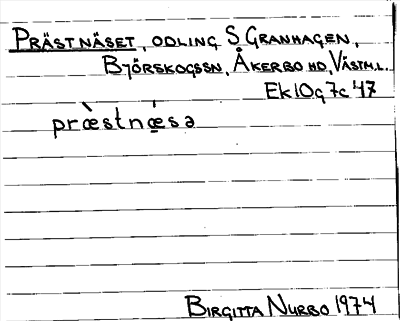 PRÄSTNÄSET, ODLING S GRANHAGEN,
BJÖRSKOGSSN, ÅKERBO HD, VÄSTM.L.
Ek 10g 7c 47
præ̀stnǽ̣sə
BIRGITTA NURBO 1974